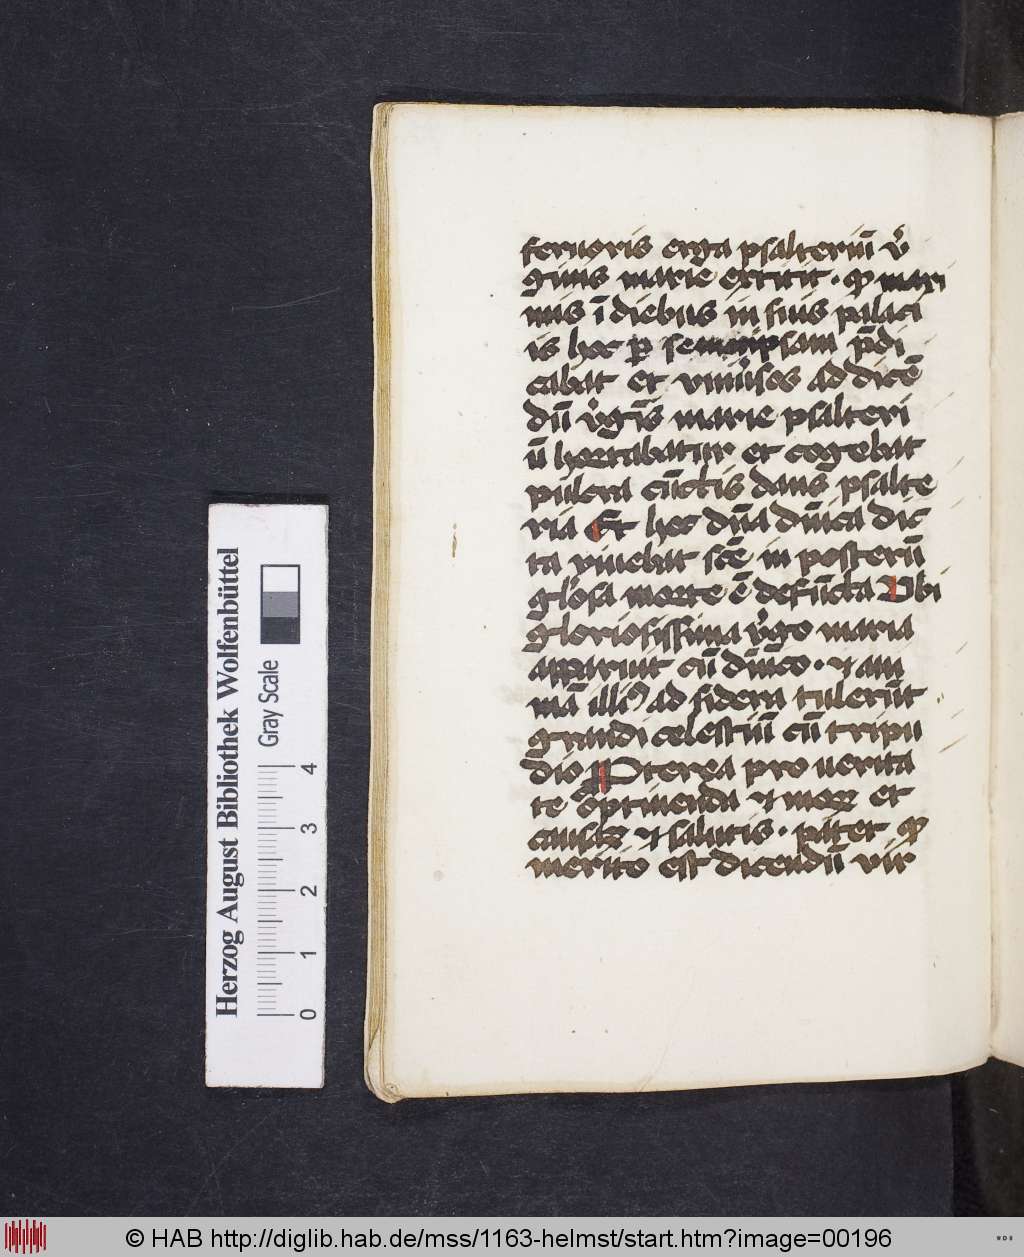 feruoris erga psalteriū v̾
ginis marie extitit · ꝙ maxi
mis ī diebus in suis palaci
is hoc ꝑ semetipsam p̄di
cabat et vniu̾sos ad dicē
dū v̾gīs marie psalteri
ū hortabatur et cogebat
pulcra cūctis dans psalte
ria Et hoc dn̄a dn̄ica dic
ta viuebat scē in posterū
gl̾osa morte ē defūcta Vbi
gloriosissima v̾go maria
apparuit cū dn̄ico · ⁊ ani
mā illiꝰ ad sidera tulerūt
grandi celestiū cū tripu
dio Pterea pro uerita
te optinenda ⁊ moꝝ et
causaꝝ ⁊ salutis · patet ꝙ
merito est dicendū vir
Herzog August Bibliothek Wolfenbüttel
Gray Scale
0 1 2 3 4
© HAB http://diglib.hab.de/mss/1163-helmst/start.htm?image=00196